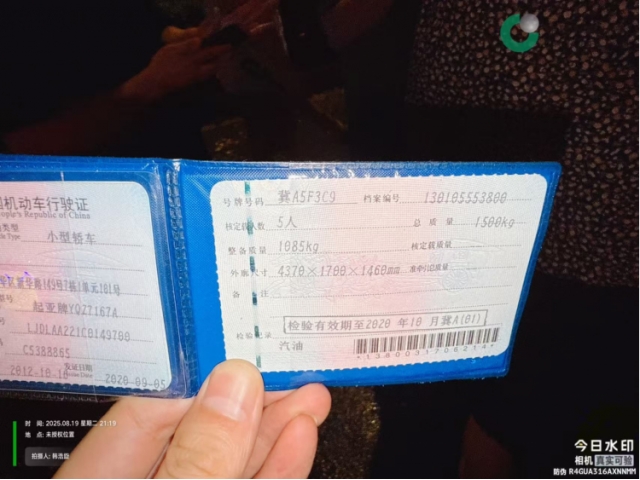 机动车行驶证
ople's Republic of China
类型
le Type
小型轿车
145号7栋1单元101号
起亚牌YQZ7167A
LJDLAA221C0149700
CS388865
发证日期
Issue Date
2012-10-10
2020-09-05
号牌号码
冀A5F3C9
档案编号
130105553800
核定载人数
5人
总质量
1500kg
整备质量
1085kg
核定载质量
外廓尺寸
4370×1700×1460mm
准牵引总质量
备注
检验有效期至2020 年10 月冀A(01)
检验记录
汽油
*1380031706214*
时 间: 2025.08.19 星期二 21:19
地 点: 未授权位置
拍摄人: 韩浩勋
今日水印
相机 真实可验
防伪 R4GUA316AXNNMM